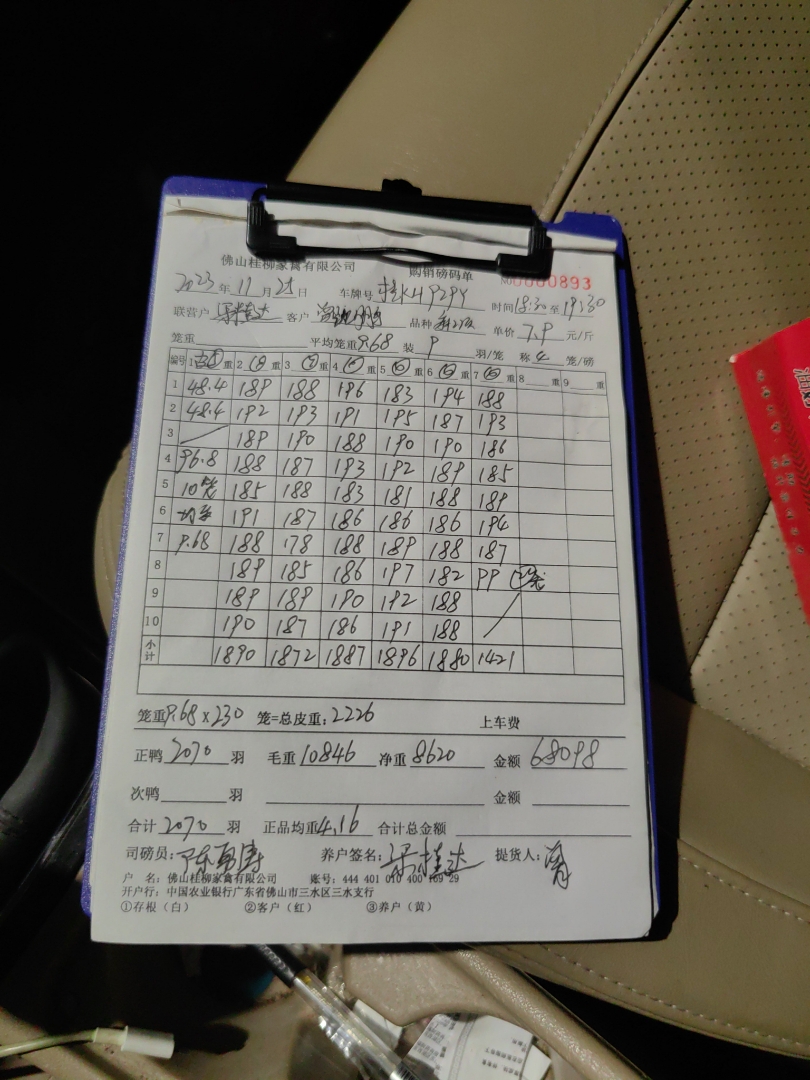 佛山桂柳家禽有限公司 购销磅码单 No 0000893
2023年11月21日 车牌号 时间18:30至19:30
联营户 客户 品种 单价7.9元/斤
笼重 平均笼重9.68 装9羽/笼 称4笼/磅
编号 1 重 2 重 3 重 4 重 5 重 6 重 7 重 8 重 9 重
1 48.4 189 188 196 183 194 188
2 48.4 192 193 191 195 187 193
3 189 190 188 190 190 186
4 96.8 188 187 193 192 189 185
5 10笼 185 188 183 181 188 189
6 均重 191 187 186 186 186 194
7 9.68 188 178 188 189 188 187
8 189 185 186 197 182 99 2笼
9 189 189 190 192 188
10 190 187 186 191 188
小计 1890 1872 1887 1896 1880 1421
笼重9.68×230 笼=总皮重:2226 上车费
正鸭2070羽 毛重10846 净重8620 金额68098
次鸭 羽 金额
合计2070羽 正品均重4.16 合计总金额
司磅员: 养户签名:梁桂达 提货人:
户 名:佛山桂柳家禽有限公司 账号:444 401 010 400 169 29
开户行:中国农业银行广东省佛山市三水区三水支行
①存根(白) ②客户(红) ③养户(黄)